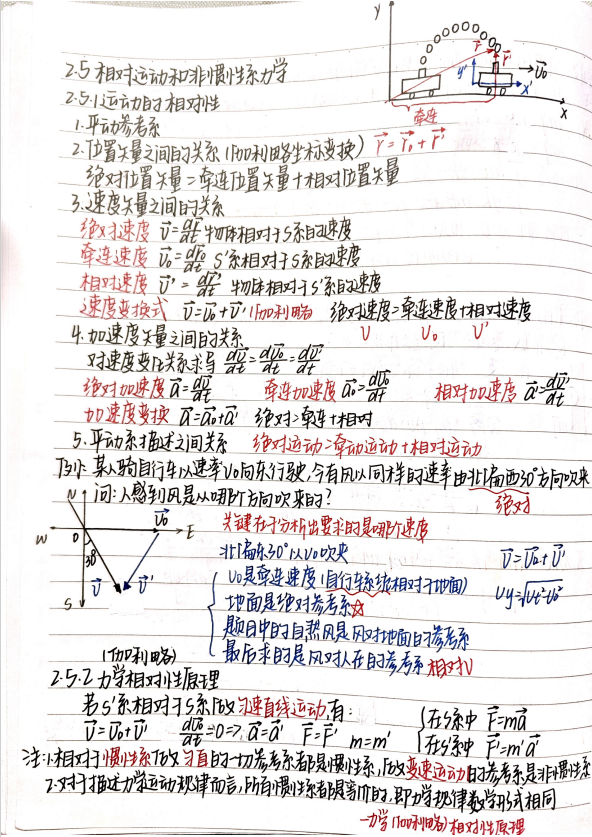 y
r⃗
r⃗'
y'
→ v⃗₀
x'
x
牵连
2.5 相对运动和非惯性系力学
2.5.1 运动的相对性
1.平动参考系
2.位置矢量之间的关系(伽利略坐标变换) r⃗=r⃗₀+r⃗'
绝对位置矢量=牵连位置矢量+相对位置矢量
3.速度矢量之间的关系
绝对速度 v⃗=dr⃗/dt 物体相对于S系的速度
牵连速度 v⃗₀=dr⃗₀/dt S'系相对于S系的速度
相对速度 v⃗'=dr⃗'/dt 物体相对于S'系的速度
速度变换式 v⃗=v⃗₀+v⃗' 伽利略 绝对速度=牵连速度+相对速度
v v₀ v'
4.加速度矢量之间的关系
对速度变化关系求导 dv⃗/dt=dv⃗₀/dt=dv⃗'/dt
绝对加速度 a⃗=dv⃗/dt 牵连加速度 a⃗₀=dv⃗₀/dt 相对加速度 a⃗'=dv⃗'/dt
加速度变换 a⃗=a⃗₀+a⃗' 绝对=牵连+相对
5.平动系描述之间关系 绝对运动=牵动运动+相对运动
例:某人骑自行车以速率v₀向东行驶,今有风以同样的速率由北偏西30°方向吹来
问:人感到风是从哪个方向吹来的? 绝对
N
W O v⃗₀ E
30°
v⃗ v⃗'
S
关键在于分析出要求的是哪个速度
北偏东30°以v₀吹来 v⃗=v⃗₀+v⃗'
v₀是牵连速度(自行车系统相对于地面)
地面是绝对参考系☆
题目中的自然风是风对地面的参考系
最后求的是风对人在的参考系 相对v
(伽利略)
2.5.2 力学相对性原理
若S'系相对于S系做匀速直线运动,有:
v⃗=v⃗₀+v⃗' dv⃗₀/dt=0=>a⃗=a⃗' F⃗=F⃗' m=m'
在S系中 F⃗=ma⃗
在S'系中 F⃗'=m'a⃗'
注:1.相对于惯性系做匀直的一切参考系都是惯性系,做变速运动的参考系是非惯性系
2.对于描述力学运动规律而言,所有惯性系都是等价的,即力学规律数学形式相同
—力学(伽利略)相对性原理